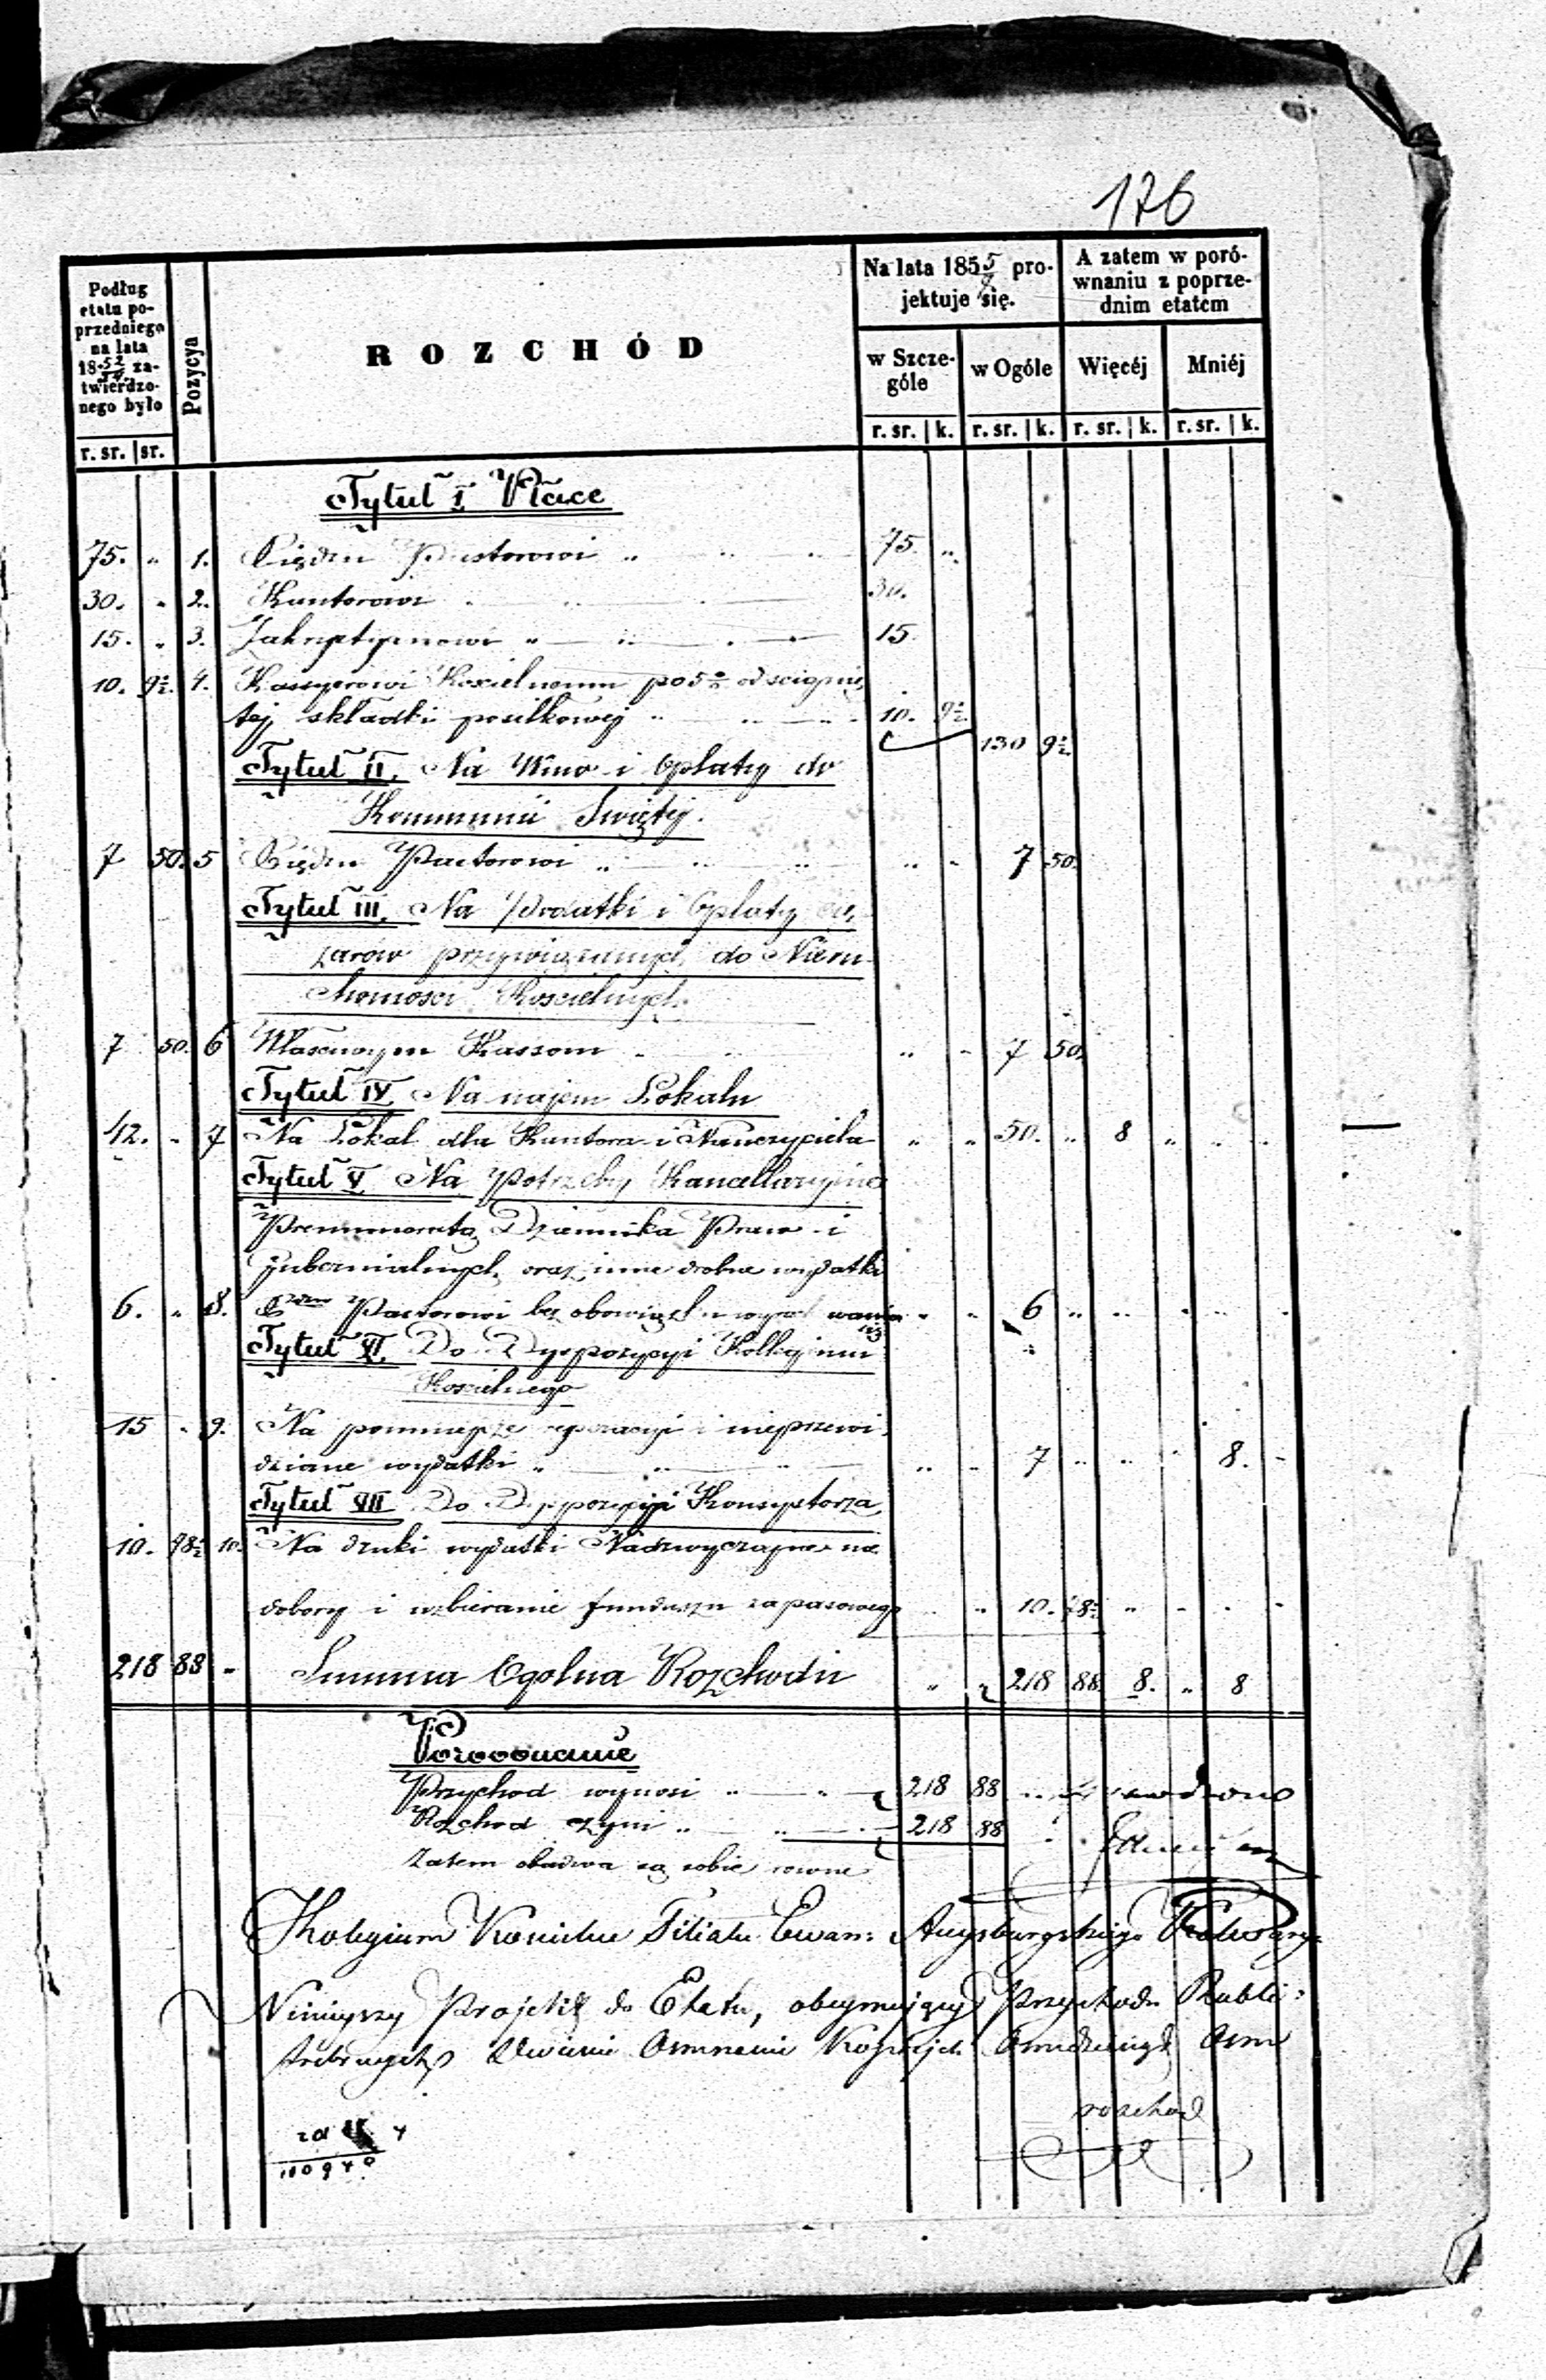 176
Podług etatu poprzedniego na lata 18 52/54 zatwierdzonego było | Pozycya | ROZCHÓD | Na lata 185 5/7 projektuje się. | A zatem w porównaniu z poprzednim etatem
w Szczególe | w Ogóle | Więcéj | Mniéj
r. sr. | sr. | r. sr. | k. | r. sr. | k. | r. sr. | k. | r. sr. | k.
Tytuł I Płace
75. " 1. Księdzu Pastorowi " " " 75. "
30. " 2. Kantorowi 30.
15. " 3. Zakrystyanowi " " 15.
10. 9½. 4. Kassyerowi Koscielnemu po 5% od sciągnię
tej składki posiłkowej " " " 10. 9½.
130 9½.
Tytuł II. Na Wino i Opłaty do
Kommunii Swiętej.
7 50. 5 Księdzu Pastorowi " " " " " 7 50.
Tytuł III. Na Podatki i Opłaty cię
żarow przywiązanych do Nieru
chomosci Koscielnych.
7 50. 6 Własciwym Kassom " " 7 50.
Tytuł IV. Na najem Lokalu
42. " 7 Na Lokal dla Kantora i Nauczyciela " " 50. " 8 " " "
Tytuł V Na Potrzeby Kancellaryine
Prenumeratę Dziennika Praw i
Gubernialnych oraz inne drobne wydatki
6. " 8. Pastorowi bez obowiązku wyra wania się " " 6 " " " " "
Tytuł VI. Do Dyspozycyi Kollegium
Koscielnego
15 " 9. Na pomniejsze reparacyi i nieprzewi
dziane wydatki " " " " " 7 " " " 8. "
Tytuł VII Do Dyspozycyi Konsystorza
10. 78½ 10. Na druki wydatki Nadzwyczajne na
dobory i uzbieranie funduszu zapasowego " " 10. 78½ " " " "
218 88 " Summa Ogolna Rozchodu " " 218 88 8. " 8
Porownanie
Przychod wynosi " " 218 88
Rozchod czyni " " 218 88
Zatem obadwa są sobie rowne
Kolegium Koscielne Filiału Ewan: Augsburgskiego
Niniejszy Projekt do Etatu, obeymujący Przychodu Rubli
srebrnych Dwiescie Osmnascie Kopiejek Osmdziesiąt Osm
rozchod